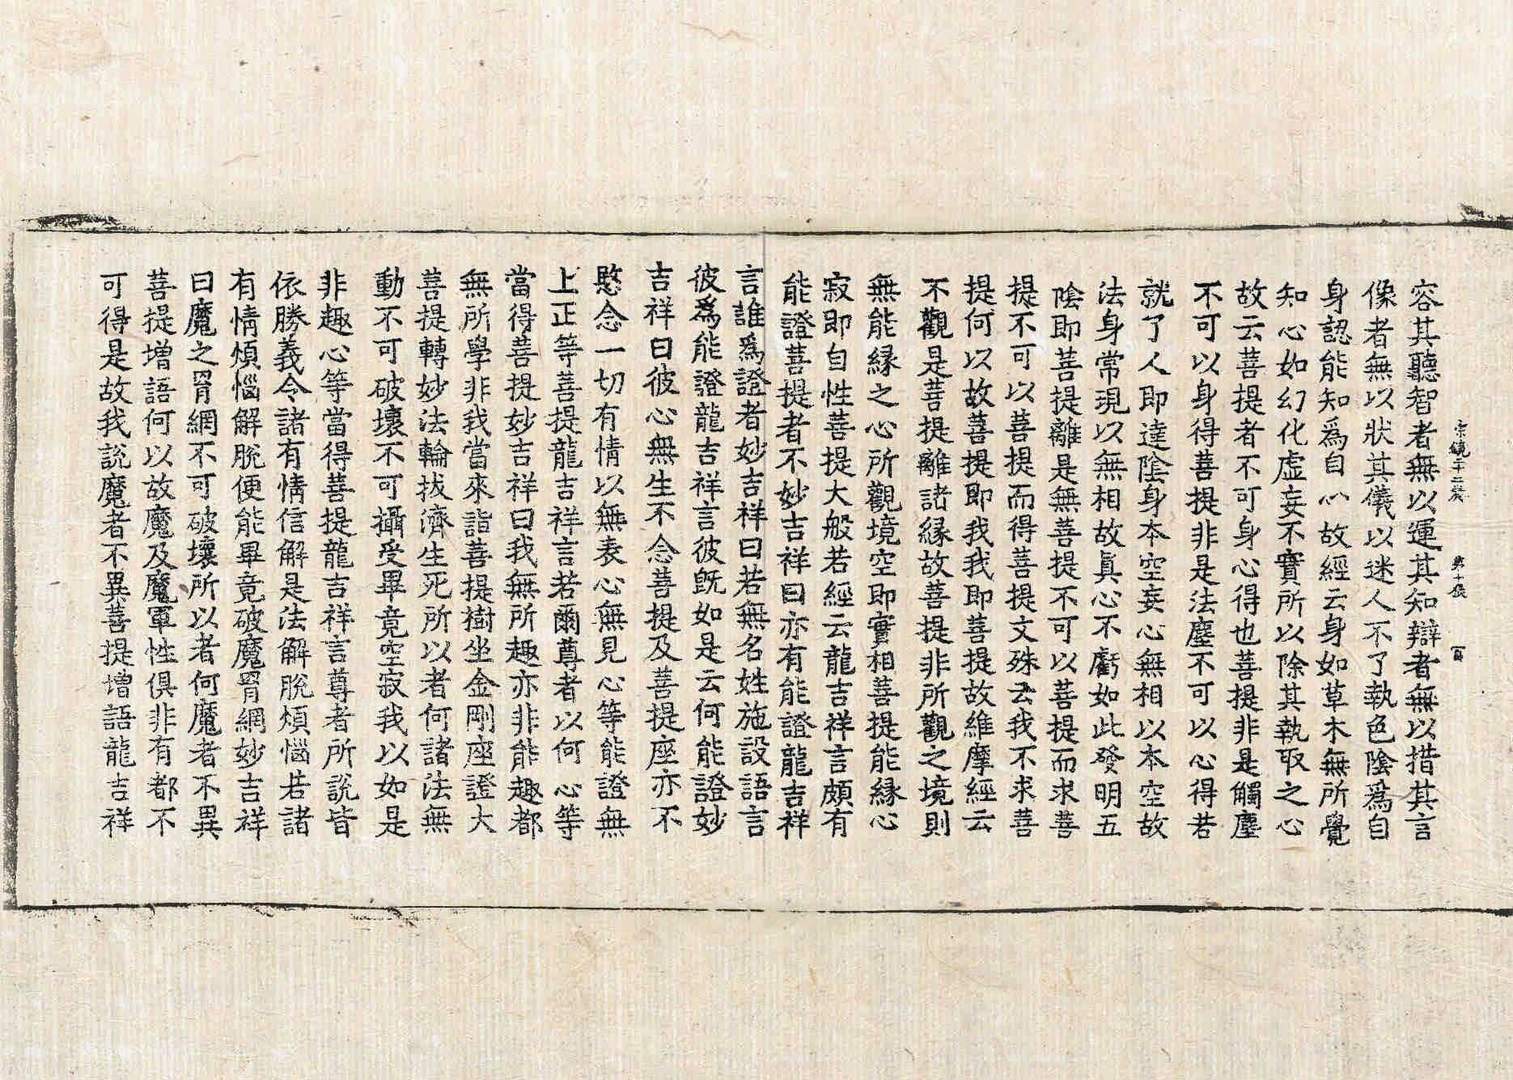 宗鏡二十二卷 第十張 百
容其聽智者無以運其知辯者無以措其言
像者無以狀其儀以迷人不了執色陰爲自
身認能知爲自心故經云身如草木無所覺
知心如幻化虛妄不實所以除其執取之心
故云菩提者不可身心得也菩提非是觸塵
不可以身得菩提非是法塵不可以心得若
就了人即達陰身本空妄心無相以本空故
法身常現以無相故眞心不虧如此發明五
陰即菩提離是無菩提不可以菩提而求菩
提不可以菩提而得菩提文殊云我不求菩
提何以故菩提即我我即菩提故維摩經云
不觀是菩提離諸緣故菩提非所觀之境則
無能緣之心所觀境空即實相菩提能緣心
寂即自性菩提大般若經云龍吉祥言頗有
能證菩提者不妙吉祥曰亦有能證龍吉祥
言誰爲證者妙吉祥曰若無名姓施設語言
彼爲能證龍吉祥言彼旣如是云何能證妙
吉祥曰彼心無生不念菩提及菩提座亦不
愍念一切有情以無表心無見心等能證無
上正等菩提龍吉祥言若爾尊者以何心等
當得菩提妙吉祥曰我無所趣亦非能趣都
無所學非我當來詣菩提樹坐金剛座證大
菩提轉妙法輪拔濟生死所以者何諸法無
動不可破壞不可攝受畢竟空寂我以如是
非趣心等當得菩提龍吉祥言尊者所說皆
依勝義令諸有情信解是法解脫煩惱若諸
有情煩惱解脫便能畢竟破魔罥網妙吉祥
曰魔之罥網不可破壞所以者何魔者不異
菩提增語何以故魔及魔軍性俱非有都不
可得是故我說魔者不異菩提增語龍吉祥